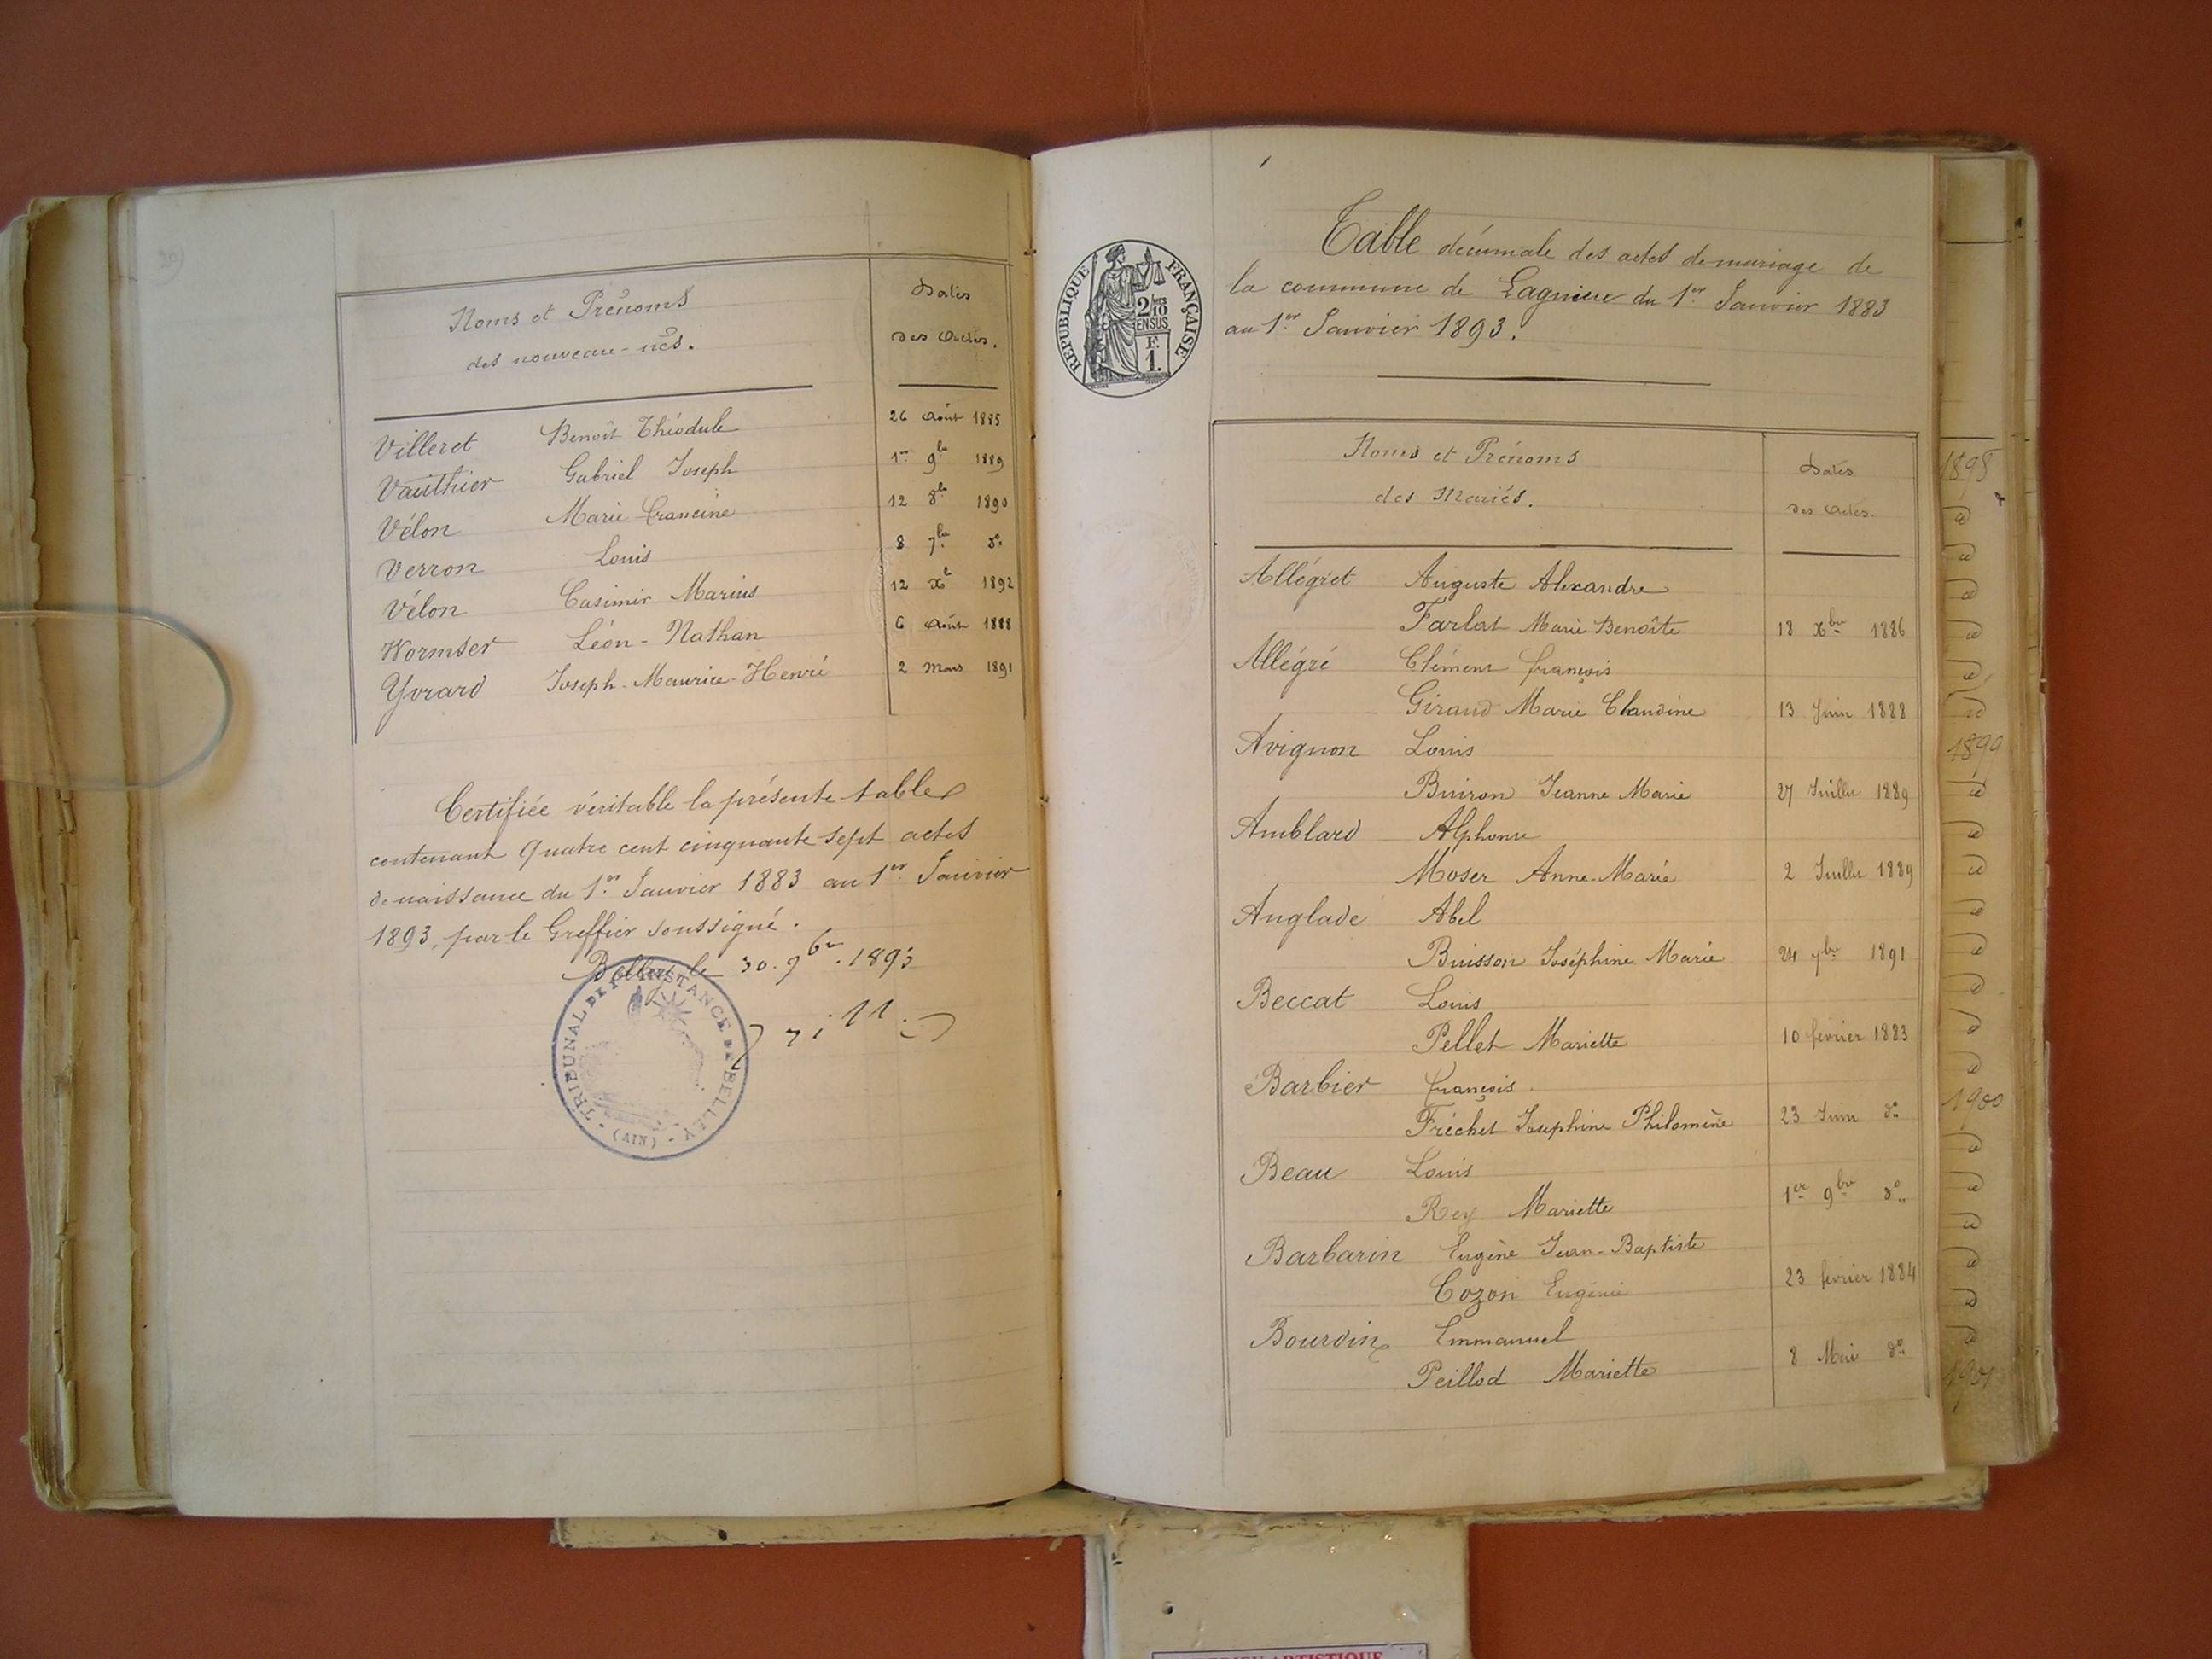 Noms et Prénoms
des nouveau-nés.
Dates
des Actes.
Villeret Benoît Théodule 26 Août 1885
Vauthier Gabriel Joseph 1er 9bre 1889
Vélon Marie Francine 12 8bre 1890
Verron Louis 8 7bre do
Vélon Casimir Marius 12 Xbre 1892
Wormser Léon-Nathan 6 Août 1888
Yvrard Joseph-Maurice-Henri 2 Mars 1891
Certifiée véritable la présente table
contenant quatre cent cinquante sept actes
de naissance du 1er Janvier 1883 au 1er Janvier
1893, par le Greffier soussigné.
Belley le 30. 9bre. 1893
TRIBUNAL DE 1ère INSTANCE DE BELLEY
(AIN)
RÉPUBLIQUE FRANÇAISE
2/10
EN SUS
F.
1.
Table décennale des actes de mariage de
la commune de Lagnieu du 1er Janvier 1883
au 1er Janvier 1893.
Noms et Prénoms
des Mariés.
Dates
des Actes.
Allégret Auguste Alexandre
Farlat Marie Benoîte 18 Xbre 1886
Allégré Clément françois
Giraud Marie Claudine 13 Juin 1888
Avignon Louis
Buiron Jeanne Marie 27 Juillet 1889
Amblard Alphonse
Moser Anne-Marie 2 Juillet 1889
Anglade Abel
Buisson Joséphine Marie 24 9bre 1891
Beccat Louis
Pellet Mariette 10 février 1883
Barbier françois
Fréchet Joséphine Philomène 23 Juin do
Beau Louis
Rey Mariette 1er 9bre do
Barbarin Eugène Jean-Baptiste
Cozon Eugénie 23 février 1884
Bourdin Emmanuel
Peillod Mariette 8 Mai do
1898
1899
1900
1901